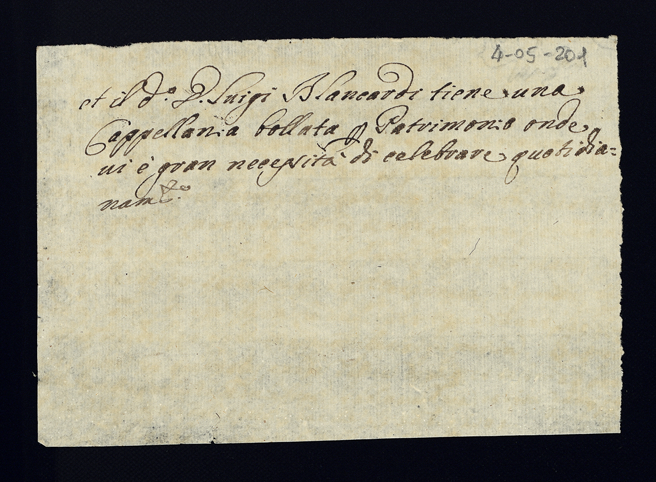 4-05-201
et il d.º D. Luigi Blancardi tiene una
Cappellania bollata p Patrimonio onde
ui è gran necessità di celebrare quotidia=
nam.te